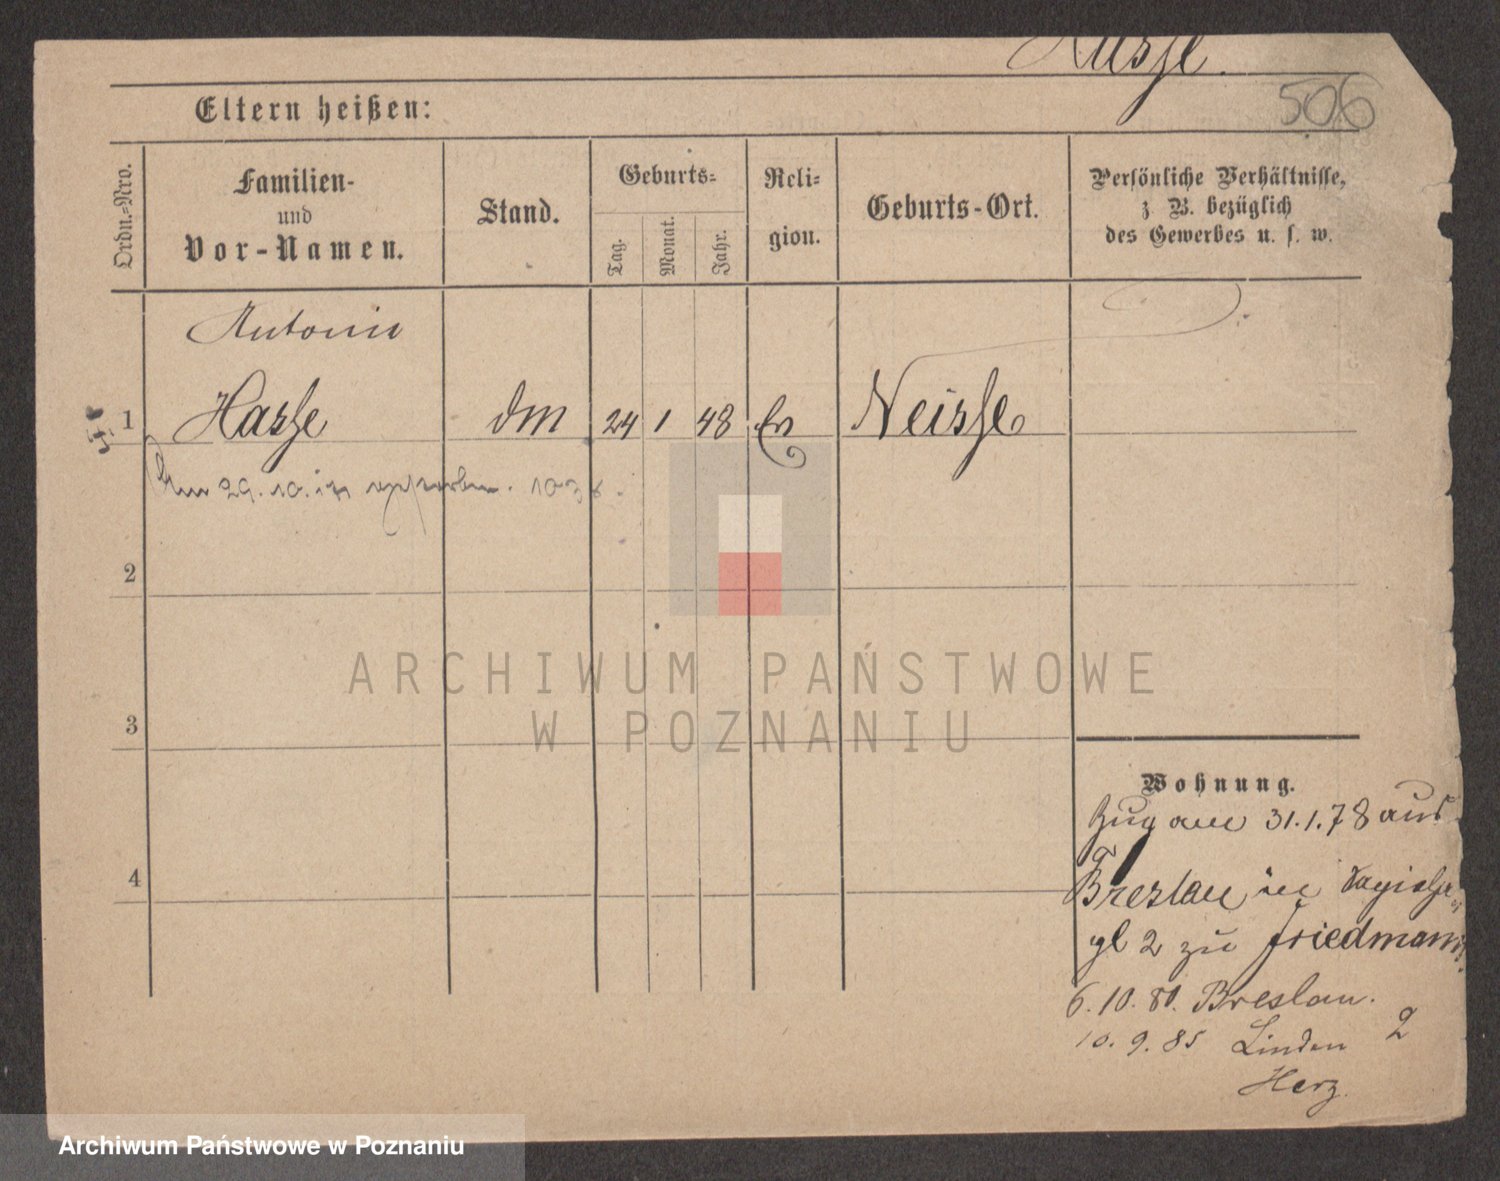 Hasse.
506
Eltern heißen:
Ordn.-Nro.
Familien-
und
Vor-Namen.
Stand.
Geburts-
Tag.
Monat.
Jahr.
Reli-
gion.
Geburts-Ort.
Persönliche Verhältnisse,
z B. bezüglich
des Gewerbes u. s. w.
Antonie
1 Hasse dm 24 1 48 Neisse
29. 10.
2
3
4
Wohnung.
Zug am 31.1.78 aus
Breslau in
gl 2 zu Friedmann
6. 10. 80. Breslau.
10. 9. 85 Linden 2
Herz.
ARCHIWUM PAŃSTWOWE
W POZNANIU
Archiwum Państwowe w Poznaniu